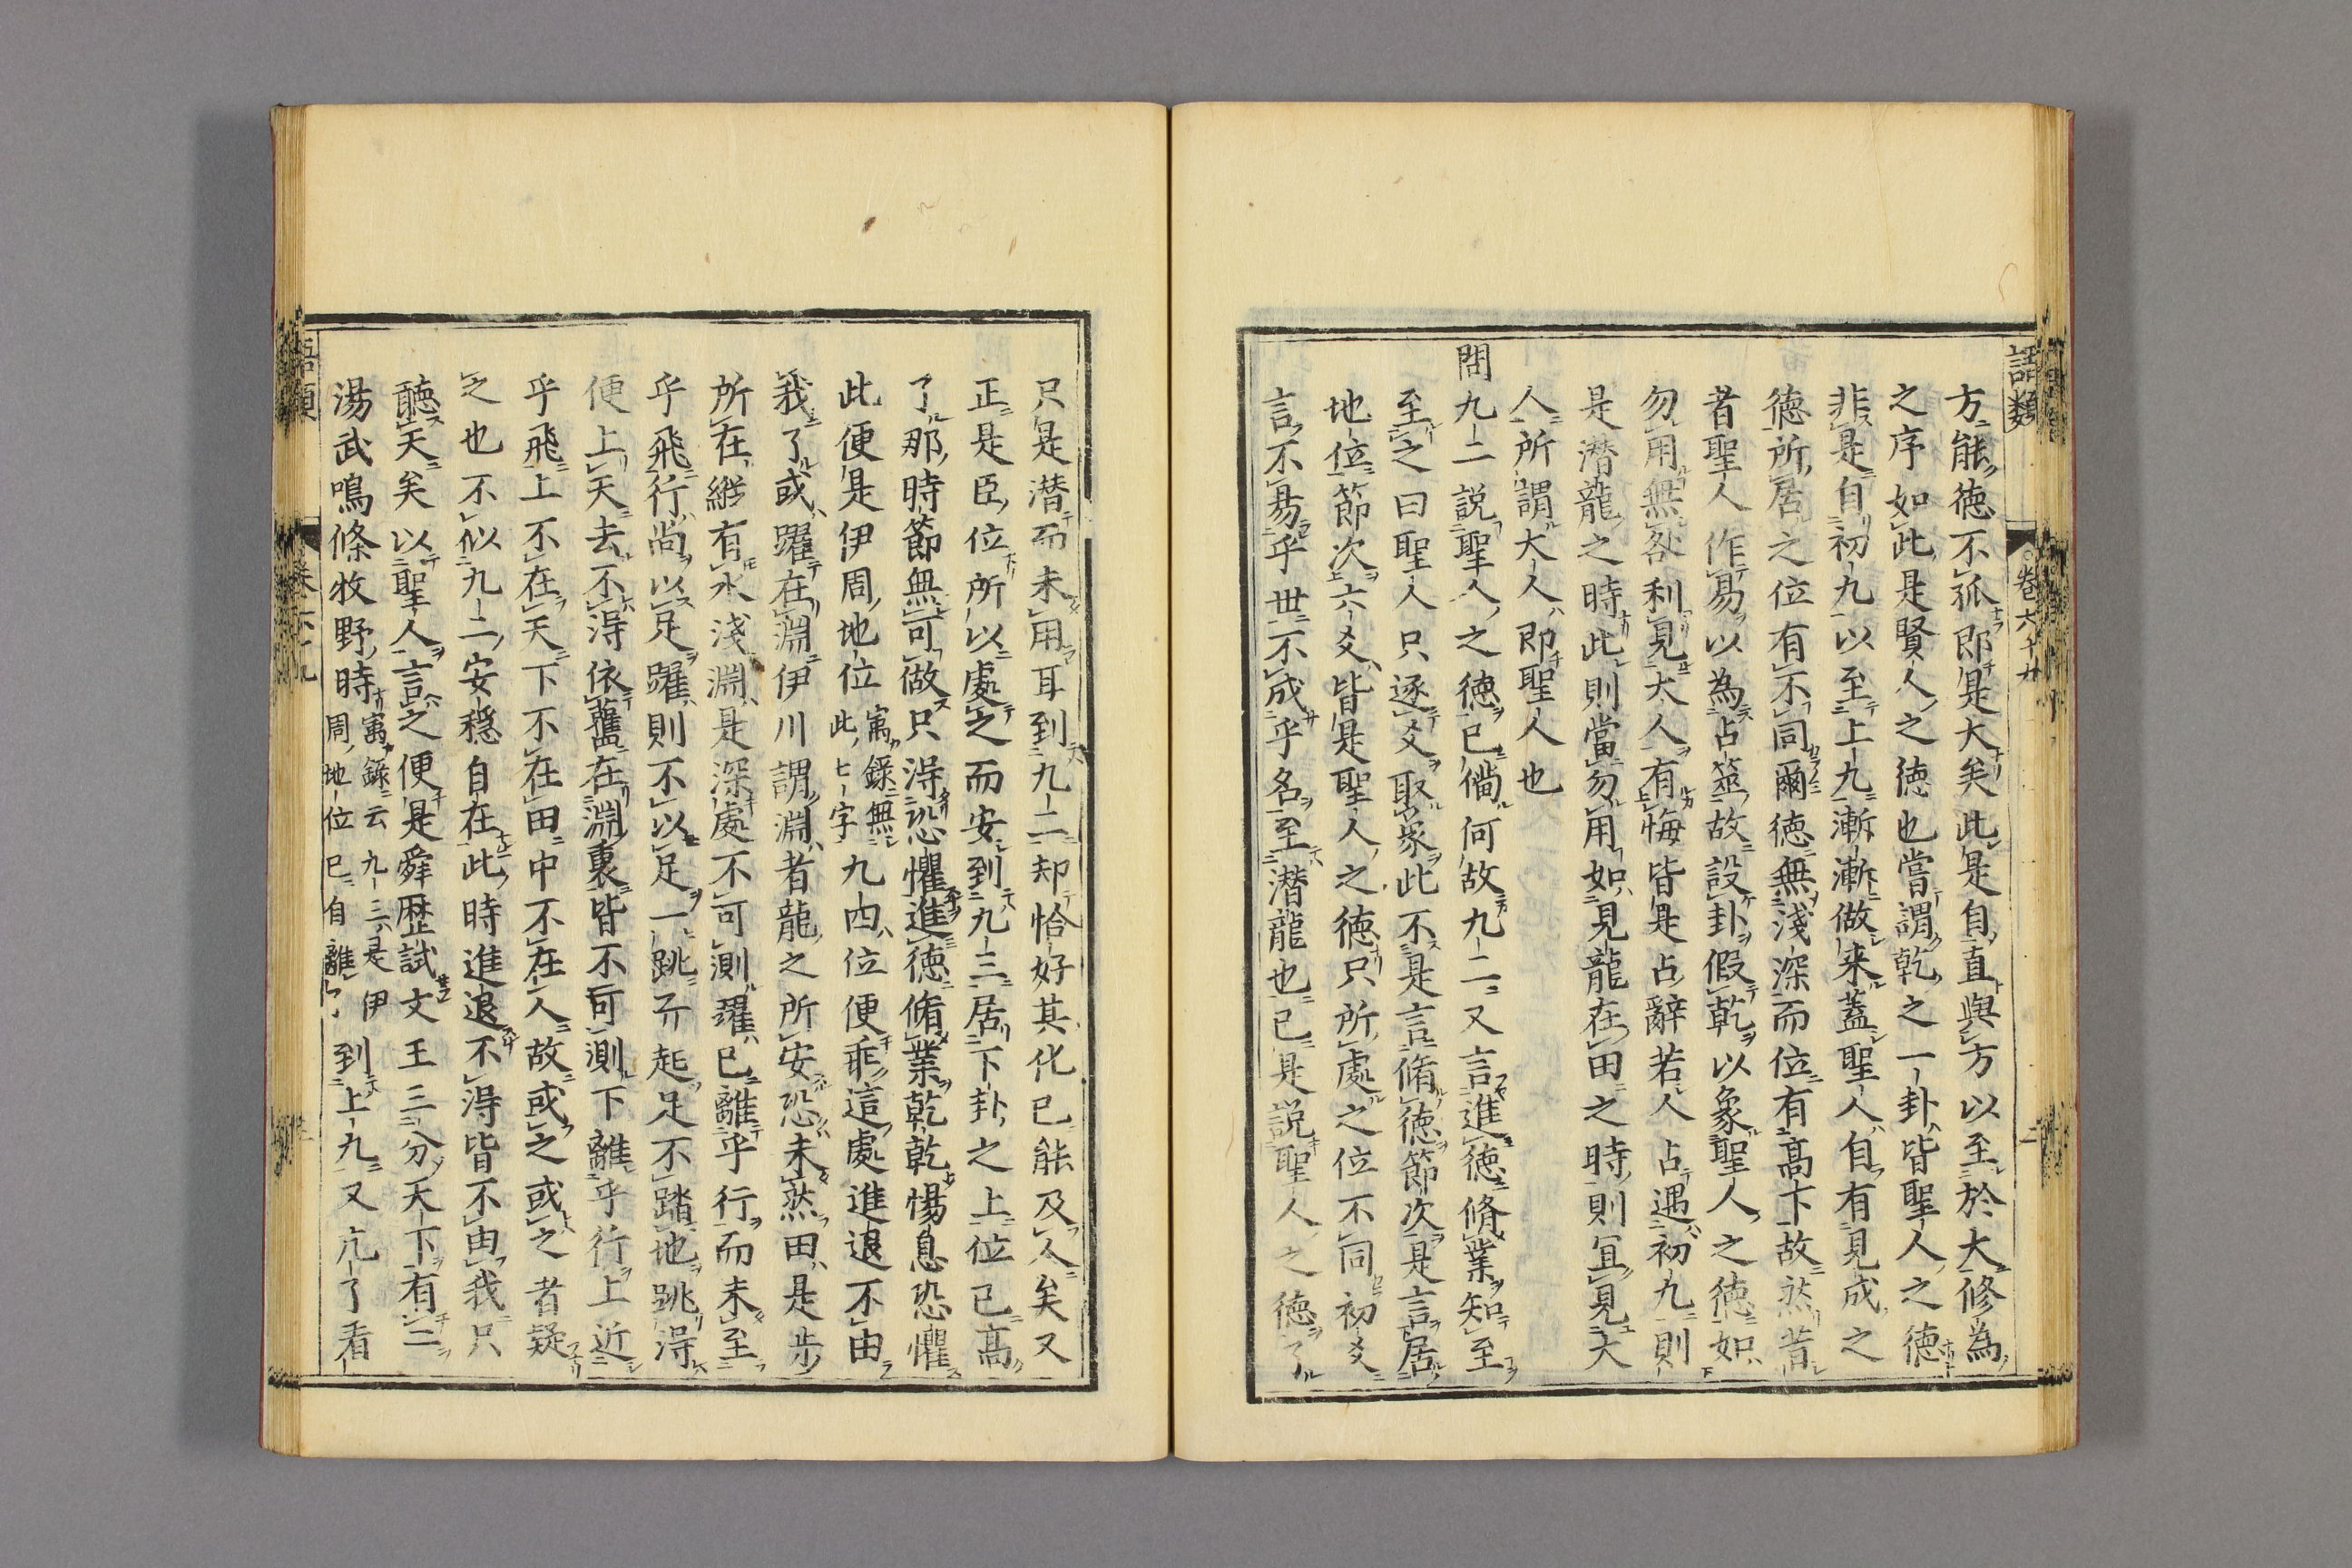 語類
卷六十九
方能德不孤即是大矣此是自直與方以至於大修為
之序如此是賢人之德也嘗謂乾之一卦皆聖人之德
非是自初九以至上九漸漸做来蓋聖人自有見成之
德所居之位有不同爾德無淺深而位有高下故然昔
者聖人作易以為占筮故設卦假乾以象聖人之德如
勿用無咎利見大人有悔皆是占辭若人占遇初九則
是潛龍之時此則當勿用如見龍在田之時則宜見大
人所謂大人即聖人也
問九二說聖人之德已備何故九二又言進德脩業知至
至之曰聖人只逐爻取象此不是言脩德節次是言居
地位節次六爻皆是聖人之德只所處之位不同初爻
言不易乎世不成乎名至潛龍也已是說聖人之德了
只是潛而未用耳到九二却恰好其化已能及人矣又
正是臣位所以處之而安到九三居下卦之上位已高
了那時節無可做只得恐懼進德脩業乾乾惕息恐懼
此便是伊周地位寓錄無此七字九四位便乖這處進退不由
我了或躍在淵伊川謂淵者龍之所安恐未然田是步
所在縱有水淺淵是深處不可測躍已離乎行而未至
乎飛行尚以足躍則不以足一跳而起足不踏地跳得
便上天去不得依舊在淵裏皆不可測下離乎行上近
乎飛上不在天下不在田中不在人故或之或之者疑
之也不似九二安穩自在此時進退不得皆不由我只
聽天矣以聖人言之便是舜歷試文王三分天下有二
湯武鳴條牧野時寓錄云九三是伊周地位已自離了到上九又亢了看
語類
卷六十九